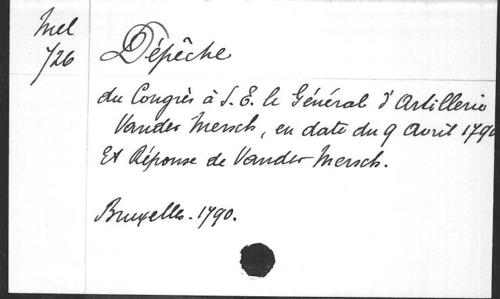 Mel
/26
Dépêche
du Congrès à S. E. le Général d'Artillerie
Vander Mersch, en date du 9 Avril 1790
Et Réponse de Vander Mersch.
Bruxelles. 1790.